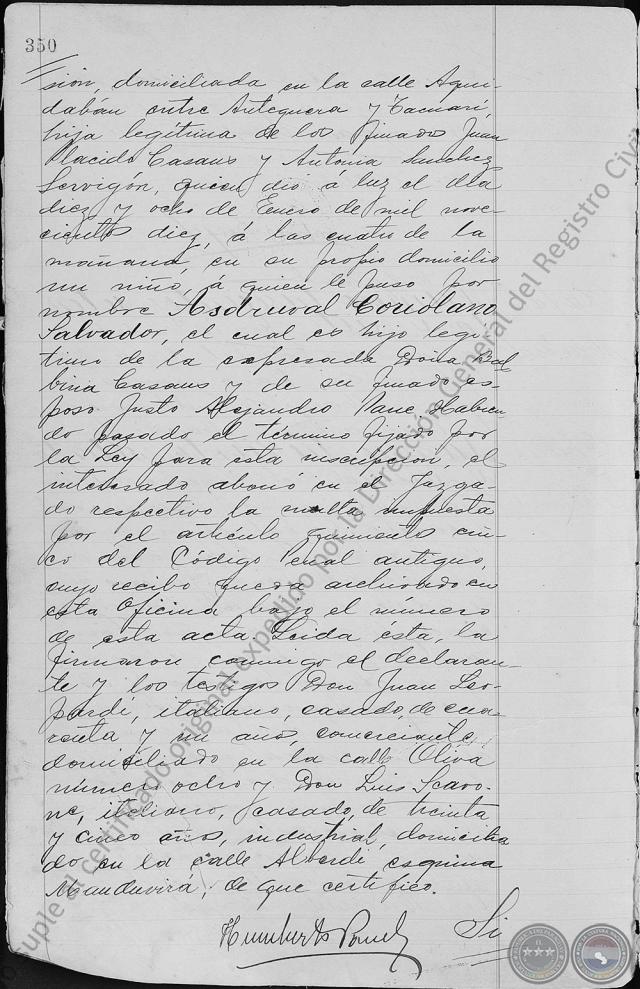 350
sión, domiciliada en la calle Aqui-
dabán entre Antequera y Tacuarí,
hija legítima de los finados Juan
Placido Casaus y Antonia Sanchez
Servigón, quien dio á luz el día
diez y ocho de Enero de mil nove-
cientos diez, á las cuatro de la
mañana, en su propio domicilio
un niño, á quien le puso por
nombre Asdruval Coriolano
Salvador, el cual es hijo legí-
timo de la expresada Doña Bal
bina Casaus y de su finado es-
poso Justo Alejandro Pane. Habien
do pasado el término fijado por
la Ley para esta inscripcion, el
interesado abonó en el Juzga-
do respectivo la multa impuesta
por el artículo quinientos cin-
co del Código Penal antiguo,
cuyo recibo queda archivado en
esta Oficina bajo el número
de esta acta. Leida ésta, la
firmaron conmigo el declaran-
te y los testigos Don Juan Leo-
pardi, italiano, casado, de cua-
renta y un años, comerciante,
domiciliado en la calle Oliva
número ocho y Don Luis Scavo-
ne, italiano, casado, de treinta
y cinco años, industrial, domicilia
do en la calle Alberdi esquina
Manduvirá; de que certifico.
Si
Humberto
tuple al certificado original expedido por la Dirección General del Registro Civi